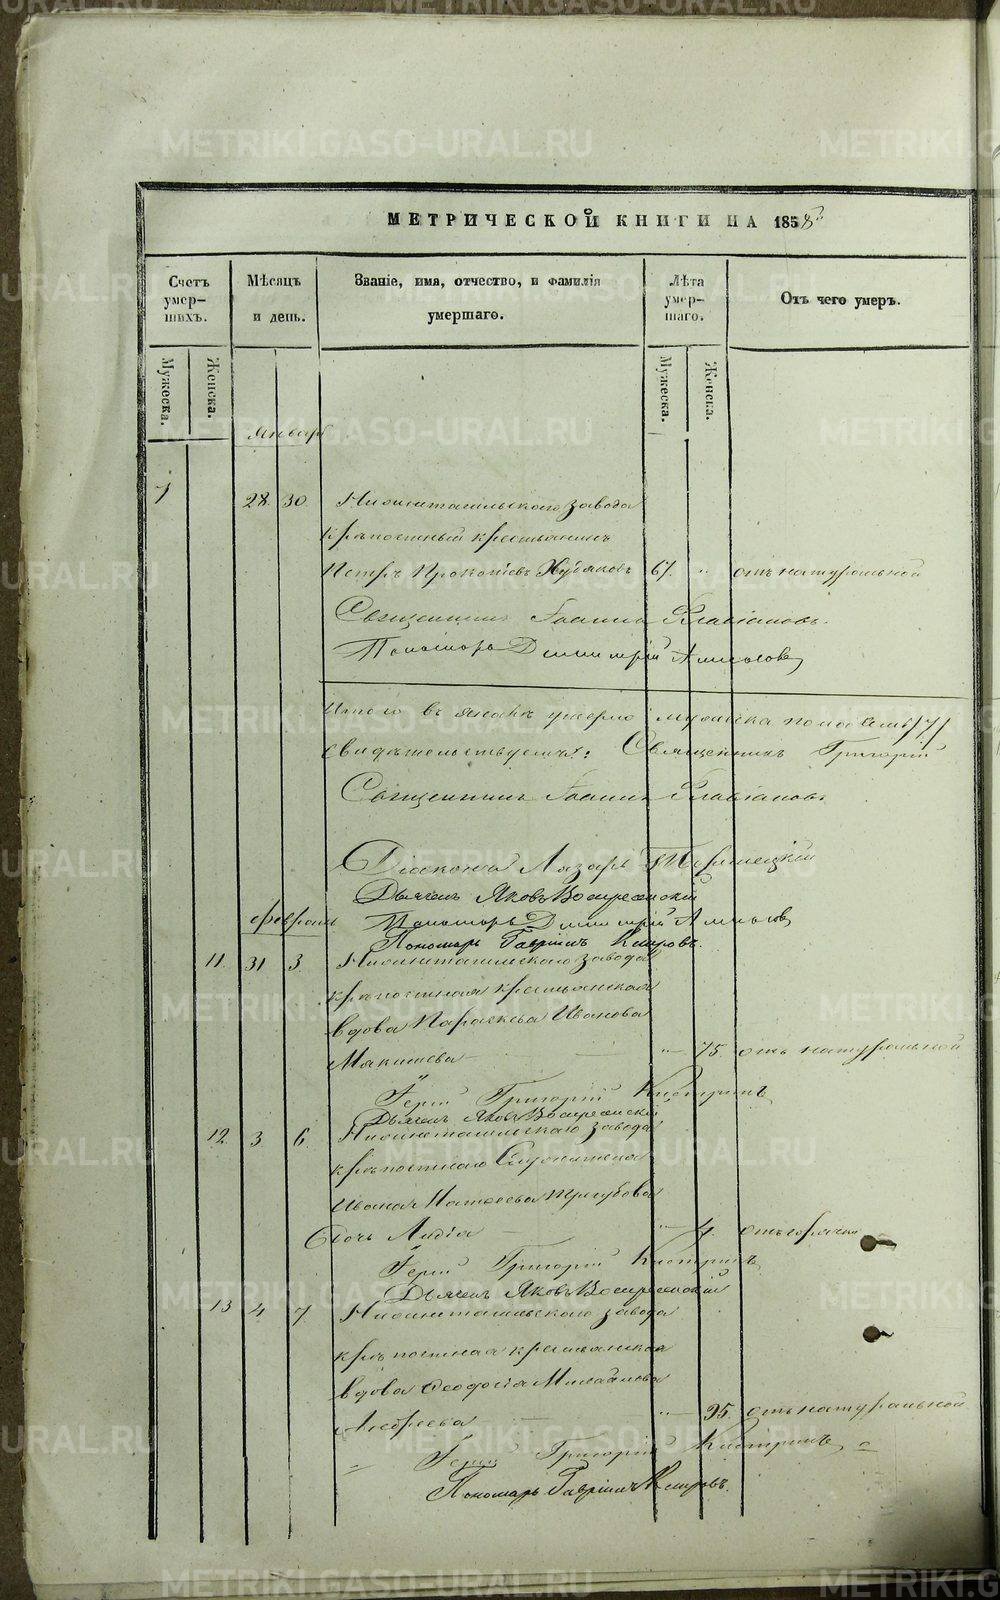 МЕТРИЧЕСКОЙ КНИГИ НА 1858
Счетъ умер-шихъ.
Мѣсяцъ и день.
Званіе, имя, отчество, и фамилія умершаго.
Лѣта умер-шаго.
Отъ чего умеръ.
Мужеска.
Женска.
Мужеска.
Женска.
Январь
7 28 30 Нижнетагильскаго завода
крѣпостный крестьянинъ
Петръ Прокопіевъ Худяковъ 67. " отъ натуральной
Священникъ Іоаннъ Флавіановъ.
Пономарь Димитрій
Итого въ умерло мужеска пола семь /7/
свидѣтельствуемъ: Священникъ Григорій
Священникъ Іоаннъ Флавіановъ
Діаконъ Лазарь
Дьячекъ Яковъ Воскресенскій
Февраль
Пономарь Димитрій
Пономарь Гавріилъ
11. 31 3. Нижнетагильскаго завода
крѣпостная крестьянская
вдова Параскева Иванова
Мякишева " 75. отъ натуральной
Іерей Григорій
Дьячекъ Яковъ Воскресенскій
12. 3 6 Нижнетагильскаго завода
крѣпостнаго
Ивана Матвеева Тригубова
дочь Лидія " 4. отъ горячки
Іерей Григорій
Дьячекъ Яковъ Воскресенскій
13 4 7 Нижнетагильскаго завода
крѣпостная крестьянская
вдова Ѳеодосія
" 95. отъ натуральной
Іерей Григорій
Пономарь Гавріилъ
METRIKI.GASO-URAL.RU